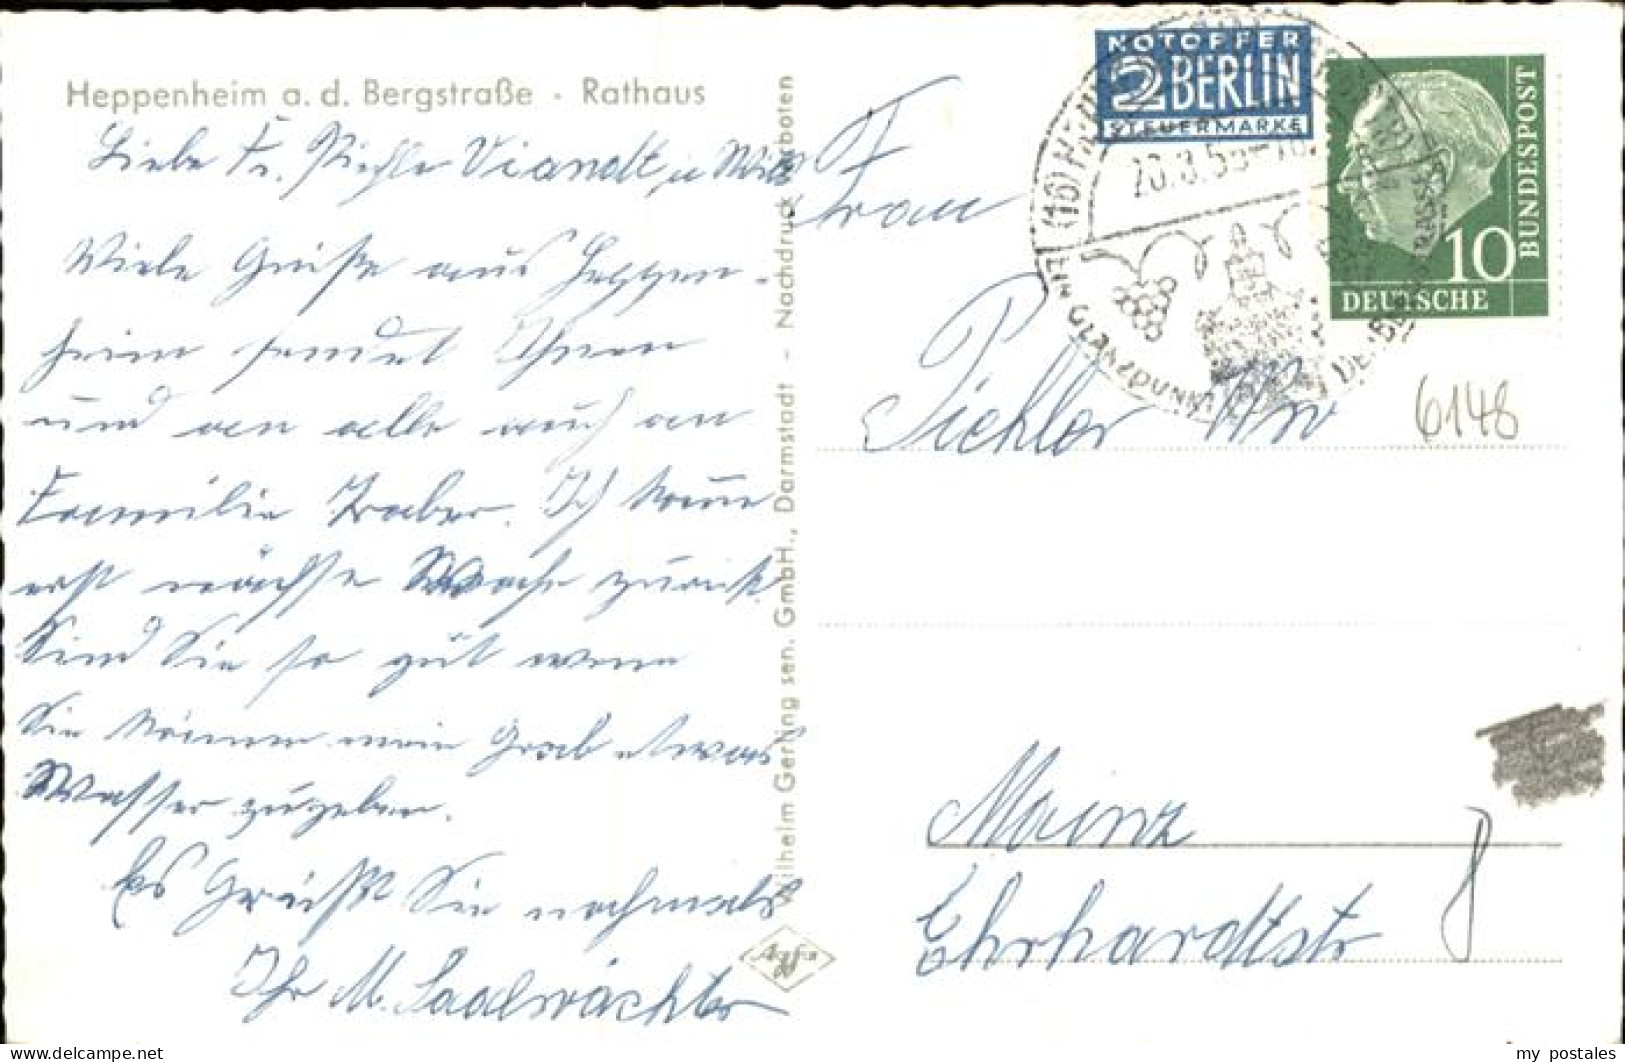 Heppenheim a. d. Bergstraße · Rathaus
Liebe Fr. Pichler Viandt, u
Viele Grüße aus Heppen-
heim sendet Ihnen
und an alle auch an
Familie Traber. Ich komme
erst nächste Woche zurück.
Sind Sie so gut wenn
Sie können mein Grab etwas
Wasser zugeben.
Es Grüßt Sie nochmals
Ihr M. Saalwächter
Wilhelm Gerling sen. GmbH., Darmstadt - Nachdruck verboten
Agfa
NOTOPFER
2 BERLIN
STEUERMARKE
(16) HEPPENHEIM
GLANZPUNKT DER BERGSTRASSE
DEUTSCHE
BUNDESPOST
10
Frau
Pichler Ww
6148
Mainz
Ehrhardtstr
8
my postales